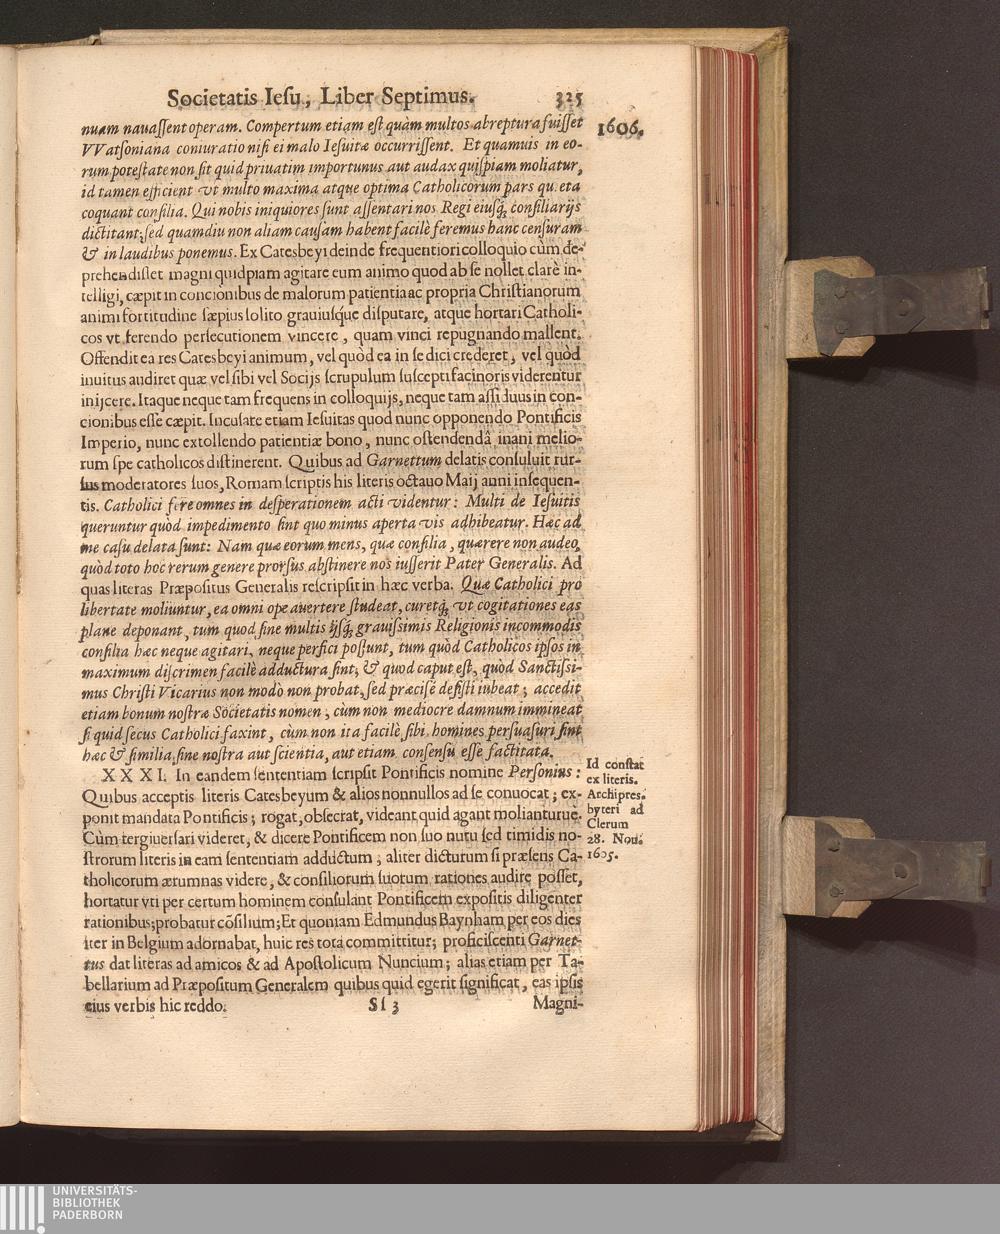 Societatis Iesu, Liber Septimus. 325
1606.
nuam nauassent operam. Compertum etiam est quàm multos abreptura fuisset
VVatsoniana coniuratio nisi ei malo Iesuitæ occurrissent. Et quamuis in eo-
rum potestate non sit quid priuatim importunus aut audax quispiam moliatur,
id tamen efficient vt multo maxima atque optima Catholicorum pars quieta
coquant consilia. Qui nobis iniquiores sunt assentari nos Regi eiusq́; consiliarijs
dictitant; sed quamdiu non aliam causam habent facilè feremus hanc censuram
& in laudibus ponemus. Ex Catesbeyi deinde frequentiori colloquio cùm de-
prehendisset magni quidpiam agitare eum animo quod ab se nollet clarè in-
telligi, cæpit in concionibus de malorum patientia ac propria Christianorum
animi fortitudine sæpius solito grauiusque disputare, atque hortari Catholi-
cos vt ferendo persecutionem vincere, quam vinci repugnando mallent.
Offendit ea res Catesbeyi animum, vel quòd ea in se dici crederet, vel quòd
inuitus audiret quæ vel sibi vel Socijs scrupulum suscepti facinoris viderentur
inijcere. Itaque neque tam frequens in colloquijs, neque tam assiduus in con-
cionibus esse cæpit. Incusare etiam Iesuitas quod nunc opponendo Pontificis
Imperio, nunc extollendo patientiæ bono, nunc ostendendâ inani melio-
rum spe catholicos distinerent. Quibus ad Garnettum delatis consuluit rur-
sus moderatores suos, Romam scriptis his literis octauo Maij anni insequen-
tis. Catholici fere omnes in desperationem acti videntur: Multi de Iesuitis
queruntur quòd impedimento sint quo minus aperta vis adhibeatur. Hæc ad
me casu delata sunt: Nam quæ eorum mens, quæ consilia, quærere non audeo,
quòd toto hoc rerum genere prorsus abstinere nos iusserit Pater Generalis. Ad
quas literas Præpositus Generalis rescripsit in hæc verba. Quæ Catholici pro
libertate moliuntur, ea omni ope auertere studeat, curetq́; vt cogitationes eas
plane deponant, tum quod sine multis ijsq́; grauissimis Religionis incommodis
consilia hæc neque agitari, neque perfici possunt, tum quòd Catholicos ipsos in
maximum discrimen facilè adductura sint; & quod caput est, quòd Sanctissi-
mus Christi Vicarius non modò non probat, sed præcisè desisti iubeat; accedit
etiam bonum nostræ Societatis nomen, cùm non mediocre damnum immineat
si quid secus Catholici faxint, cùm non ita facilè sibi homines persuasuri sint
hæc & similia sine nostra aut scientia, aut etiam consensu esse factitata.
XXXI. In eandem sententiam scripsit Pontificis nomine Personius:
Quibus acceptis literis Catesbeyum & alios nonnullos ad se conuocat; ex-
ponit mandata Pontificis; rogat, obsecrat, videant quid agant molianturuè.
Cùm tergiuersari videret, & dicere Pontificem non suo nutu sed timidis no-
strorum literis in eam sententiam adductum; aliter dicturum si præsens Ca-
tholicorum ærumnas videre, & consiliorum suorum rationes audire posset,
hortatur vti per certum hominem consulant Pontificem expositis diligenter
rationibus; probatur cōsilium; Et quoniam Edmundus Baynham per eos dies
iter in Belgium adornabat, huic res tota committitur; proficiscenti Garnet-
tus dat literas ad amicos & ad Apostolicum Nuncium; alias etiam per Ta-
bellarium ad Præpositum Generalem quibus quid egerit significat, eas ipsis
eius verbis hic reddo.
Sſ 3 Magni-
Id constat
ex literis.
Archipres-
byteri ad
Clerum
28. Nou.
1605.
UNIVERSITÄTS-
BIBLIOTHEK
PADERBORN